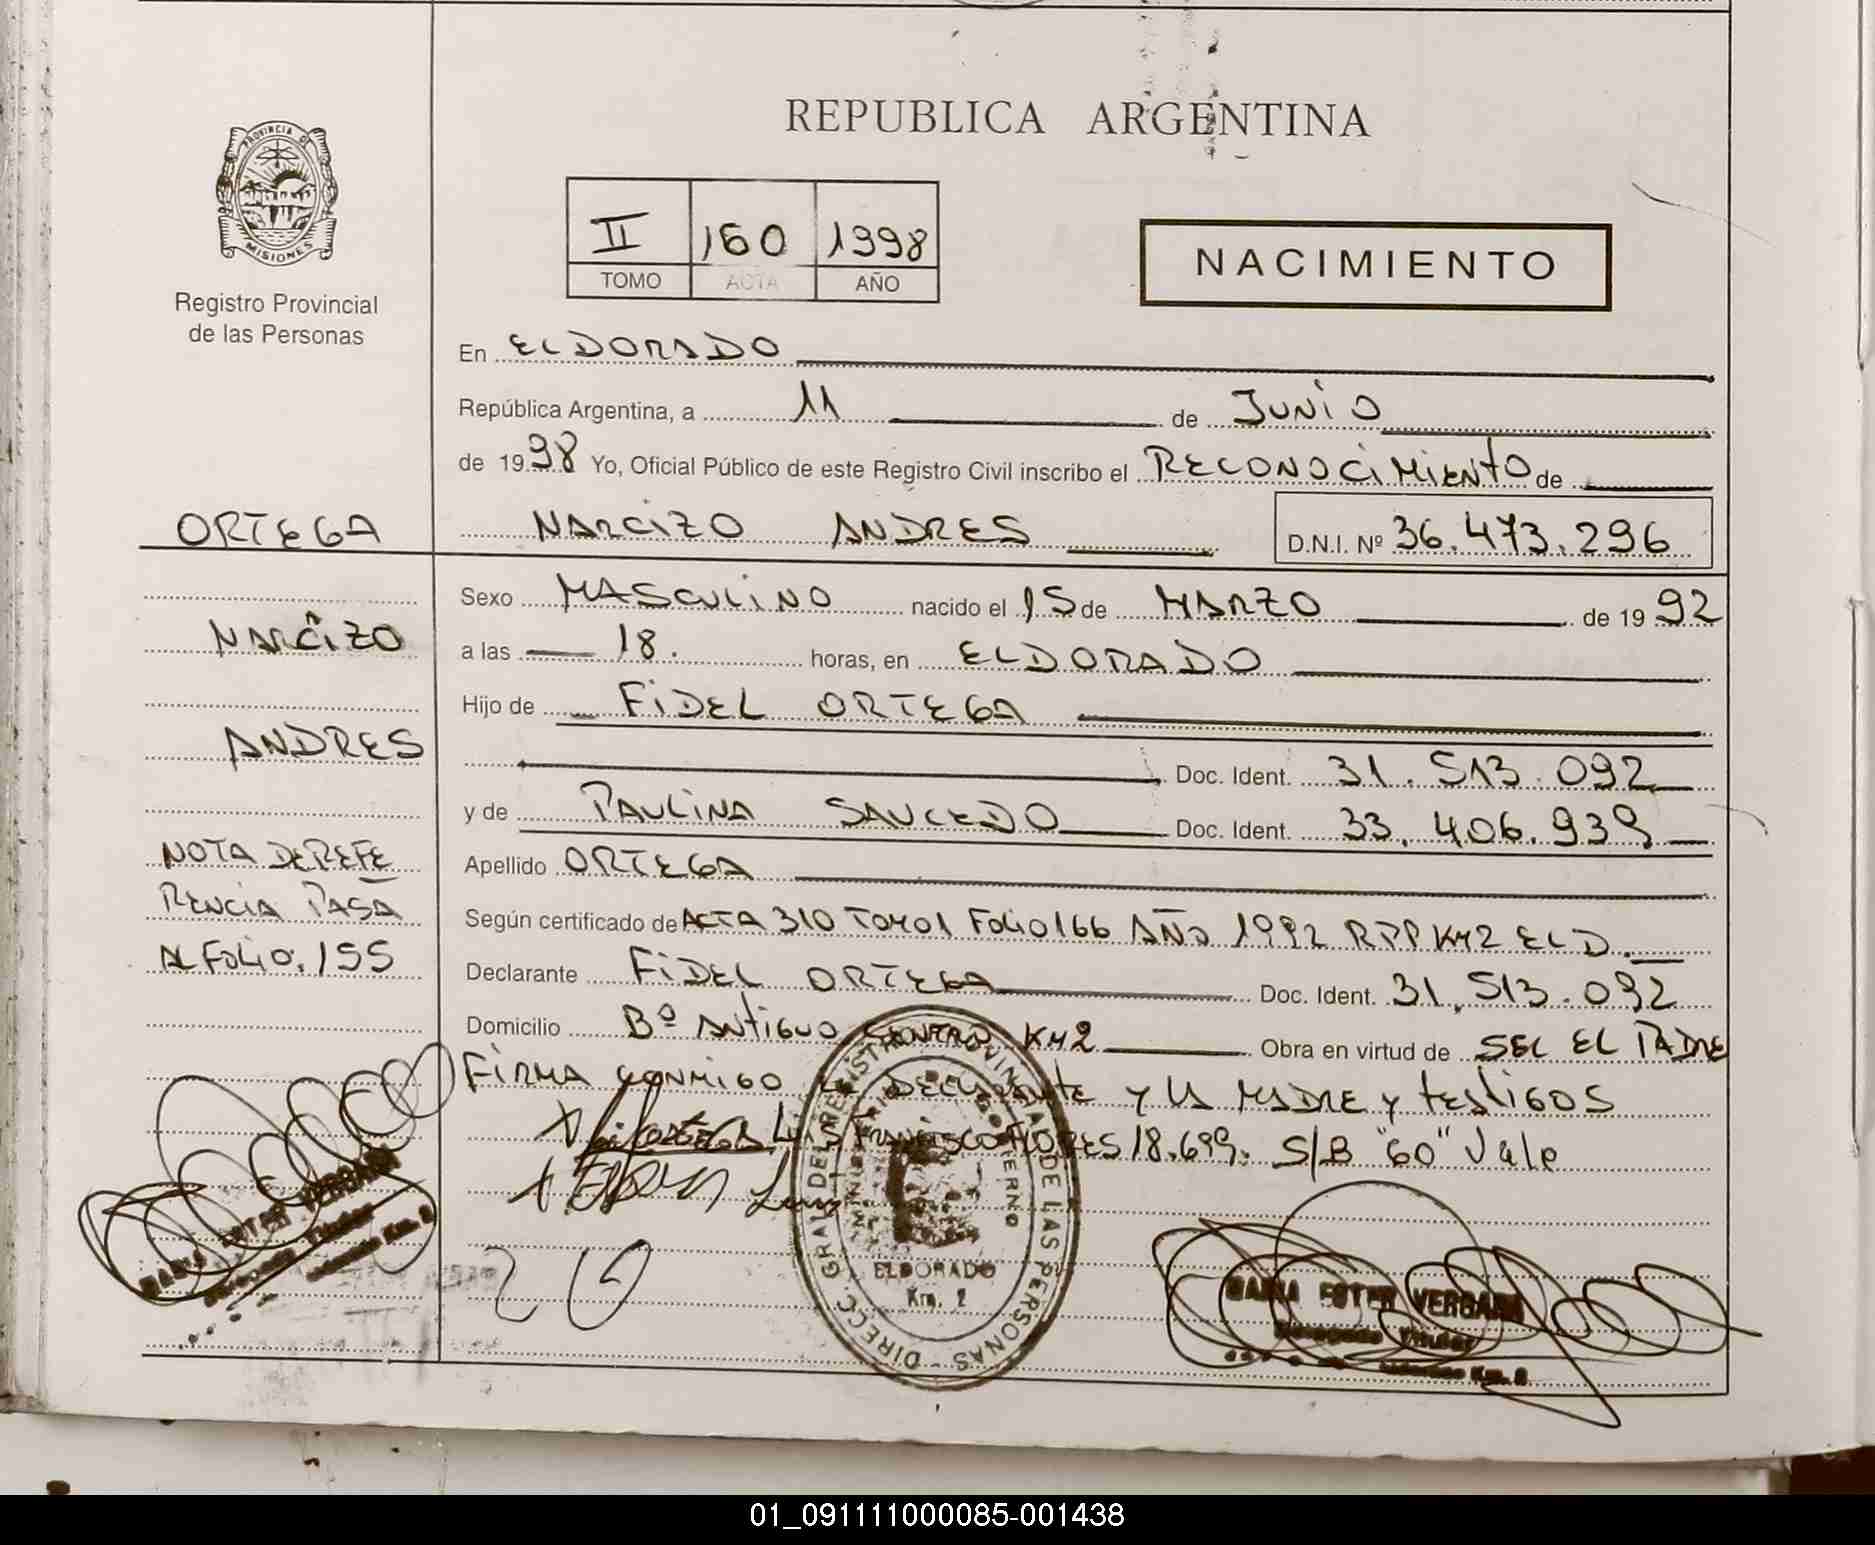 REPUBLICA ARGENTINA
PROVINCIA DE
MISIONES
Registro Provincial
de las Personas
II 160 1998
TOMO ACTA AÑO
NACIMIENTO
En ELDORADO
República Argentina, a 11 de JUNIO
de 1998 Yo, Oficial Público de este Registro Civil inscribo el RECONOCIMIENTO de
NARCIZO ANDRES D.N.I. Nº 36.473.296
ORTEGA
Sexo MASCULINO nacido el 15 de MARZO de 1992
NARCIZO
a las 18. horas, en ELDORADO
Hijo de FIDEL ORTEGA
ANDRES
Doc. Ident. 31.513.092
y de PAULINA SAUCEDO Doc. Ident. 33.406.939
NOTA DE REFE
RENCIA PASA
AL FOLIO.155
Apellido ORTEGA
Según certificado de ACTA 310 TOMO1 FOLIO166 AÑO 1992 RPP KM2 ELD.
Declarante FIDEL ORTEGA Doc. Ident. 31.513.092
Domicilio Bº ANTIGUO CENTRO KM2 Obra en virtud de SER EL PADRE
FIRMA CONMIGO EL DECLARANTE Y LA MADRE Y TESTIGOS
FRANCISCO FLORES 18.699. S/B "60" Vale
DIRECC. GRAL DEL REGISTRO PROVINCIAL DE LAS PERSONAS
MINISTERIO DE GOBIERNO
ELDORADO
Km. 2
MARIA ESTER VERGARA
Delegada Titular
Eldorado Km. 2
MARIA ESTER VERGARA
Delegada Titular
Eldorado Km. 2
01_091111000085-001438